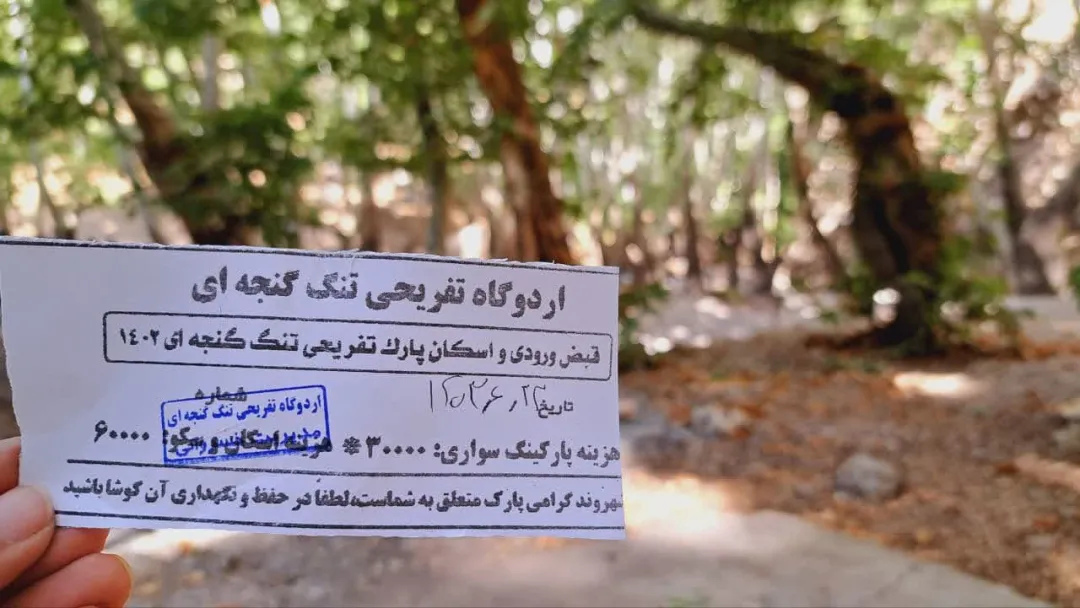 اردوگاه تفریحی تنگ گنجه ای
قبض ورودی و اسکان پارک تفریحی تنگ گنجه ای ۱۴۰۲
شماره
تاریخ
اردوگاه تفریحی تنگ گنجه ای
هزینه پارکینگ سواری: ۳۰۰۰۰ * هزینه اسکان و سکو: ۶۰۰۰۰
شهروند گرامی پارک متعلق به شماست،لطفا در حفظ و نگهداری آن کوشا باشید